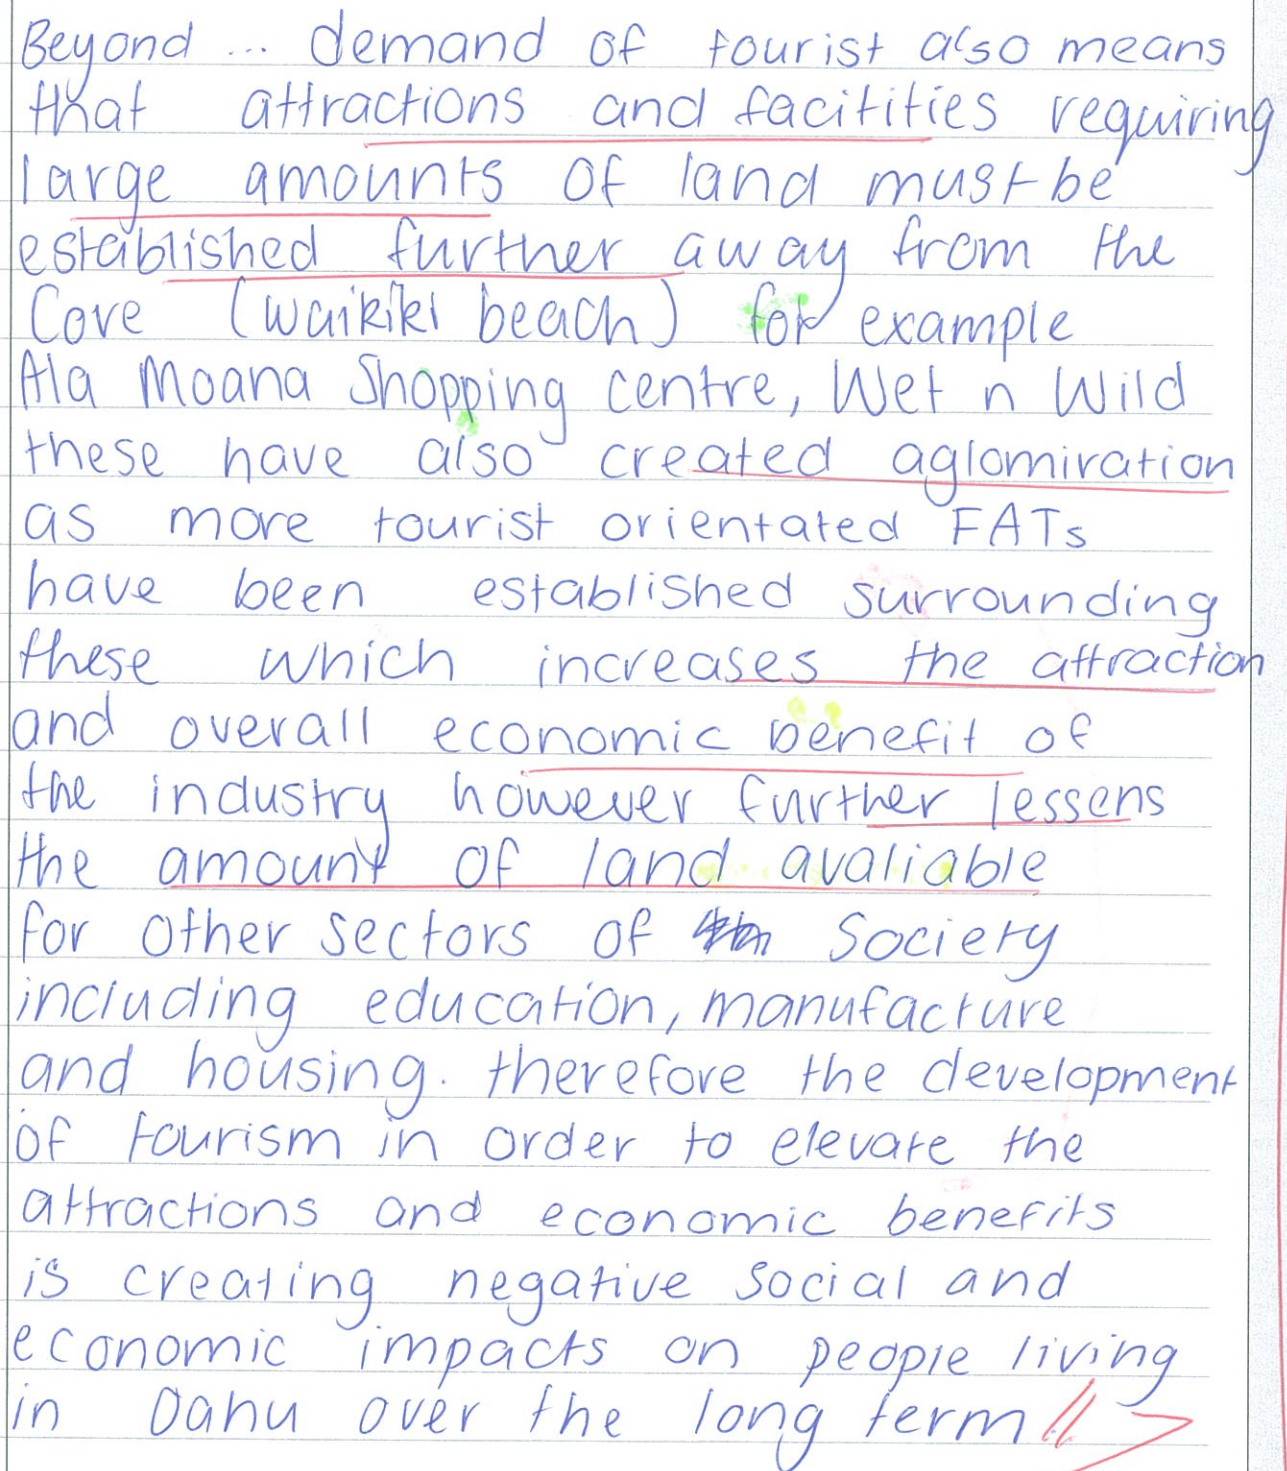 Beyond ... demand of tourist also means
that attractions and facitities requiring
large amounts of land must be
established further away from the
Core (waikiki beach) for example
Ala Moana Shopping centre, Wet n Wild
these have also created aglomiration
as more tourist orientated FATs
have been established surrounding
these which increases the attraction
and overall economic benefit of
the industry however further lessens
the amount of land avaliable
for other sectors of society
including education, manufacture
and housing. therefore the development
of tourism in order to elevate the
attractions and economic benefits
is creating negative social and
economic impacts on people living
in Oahu over the long term